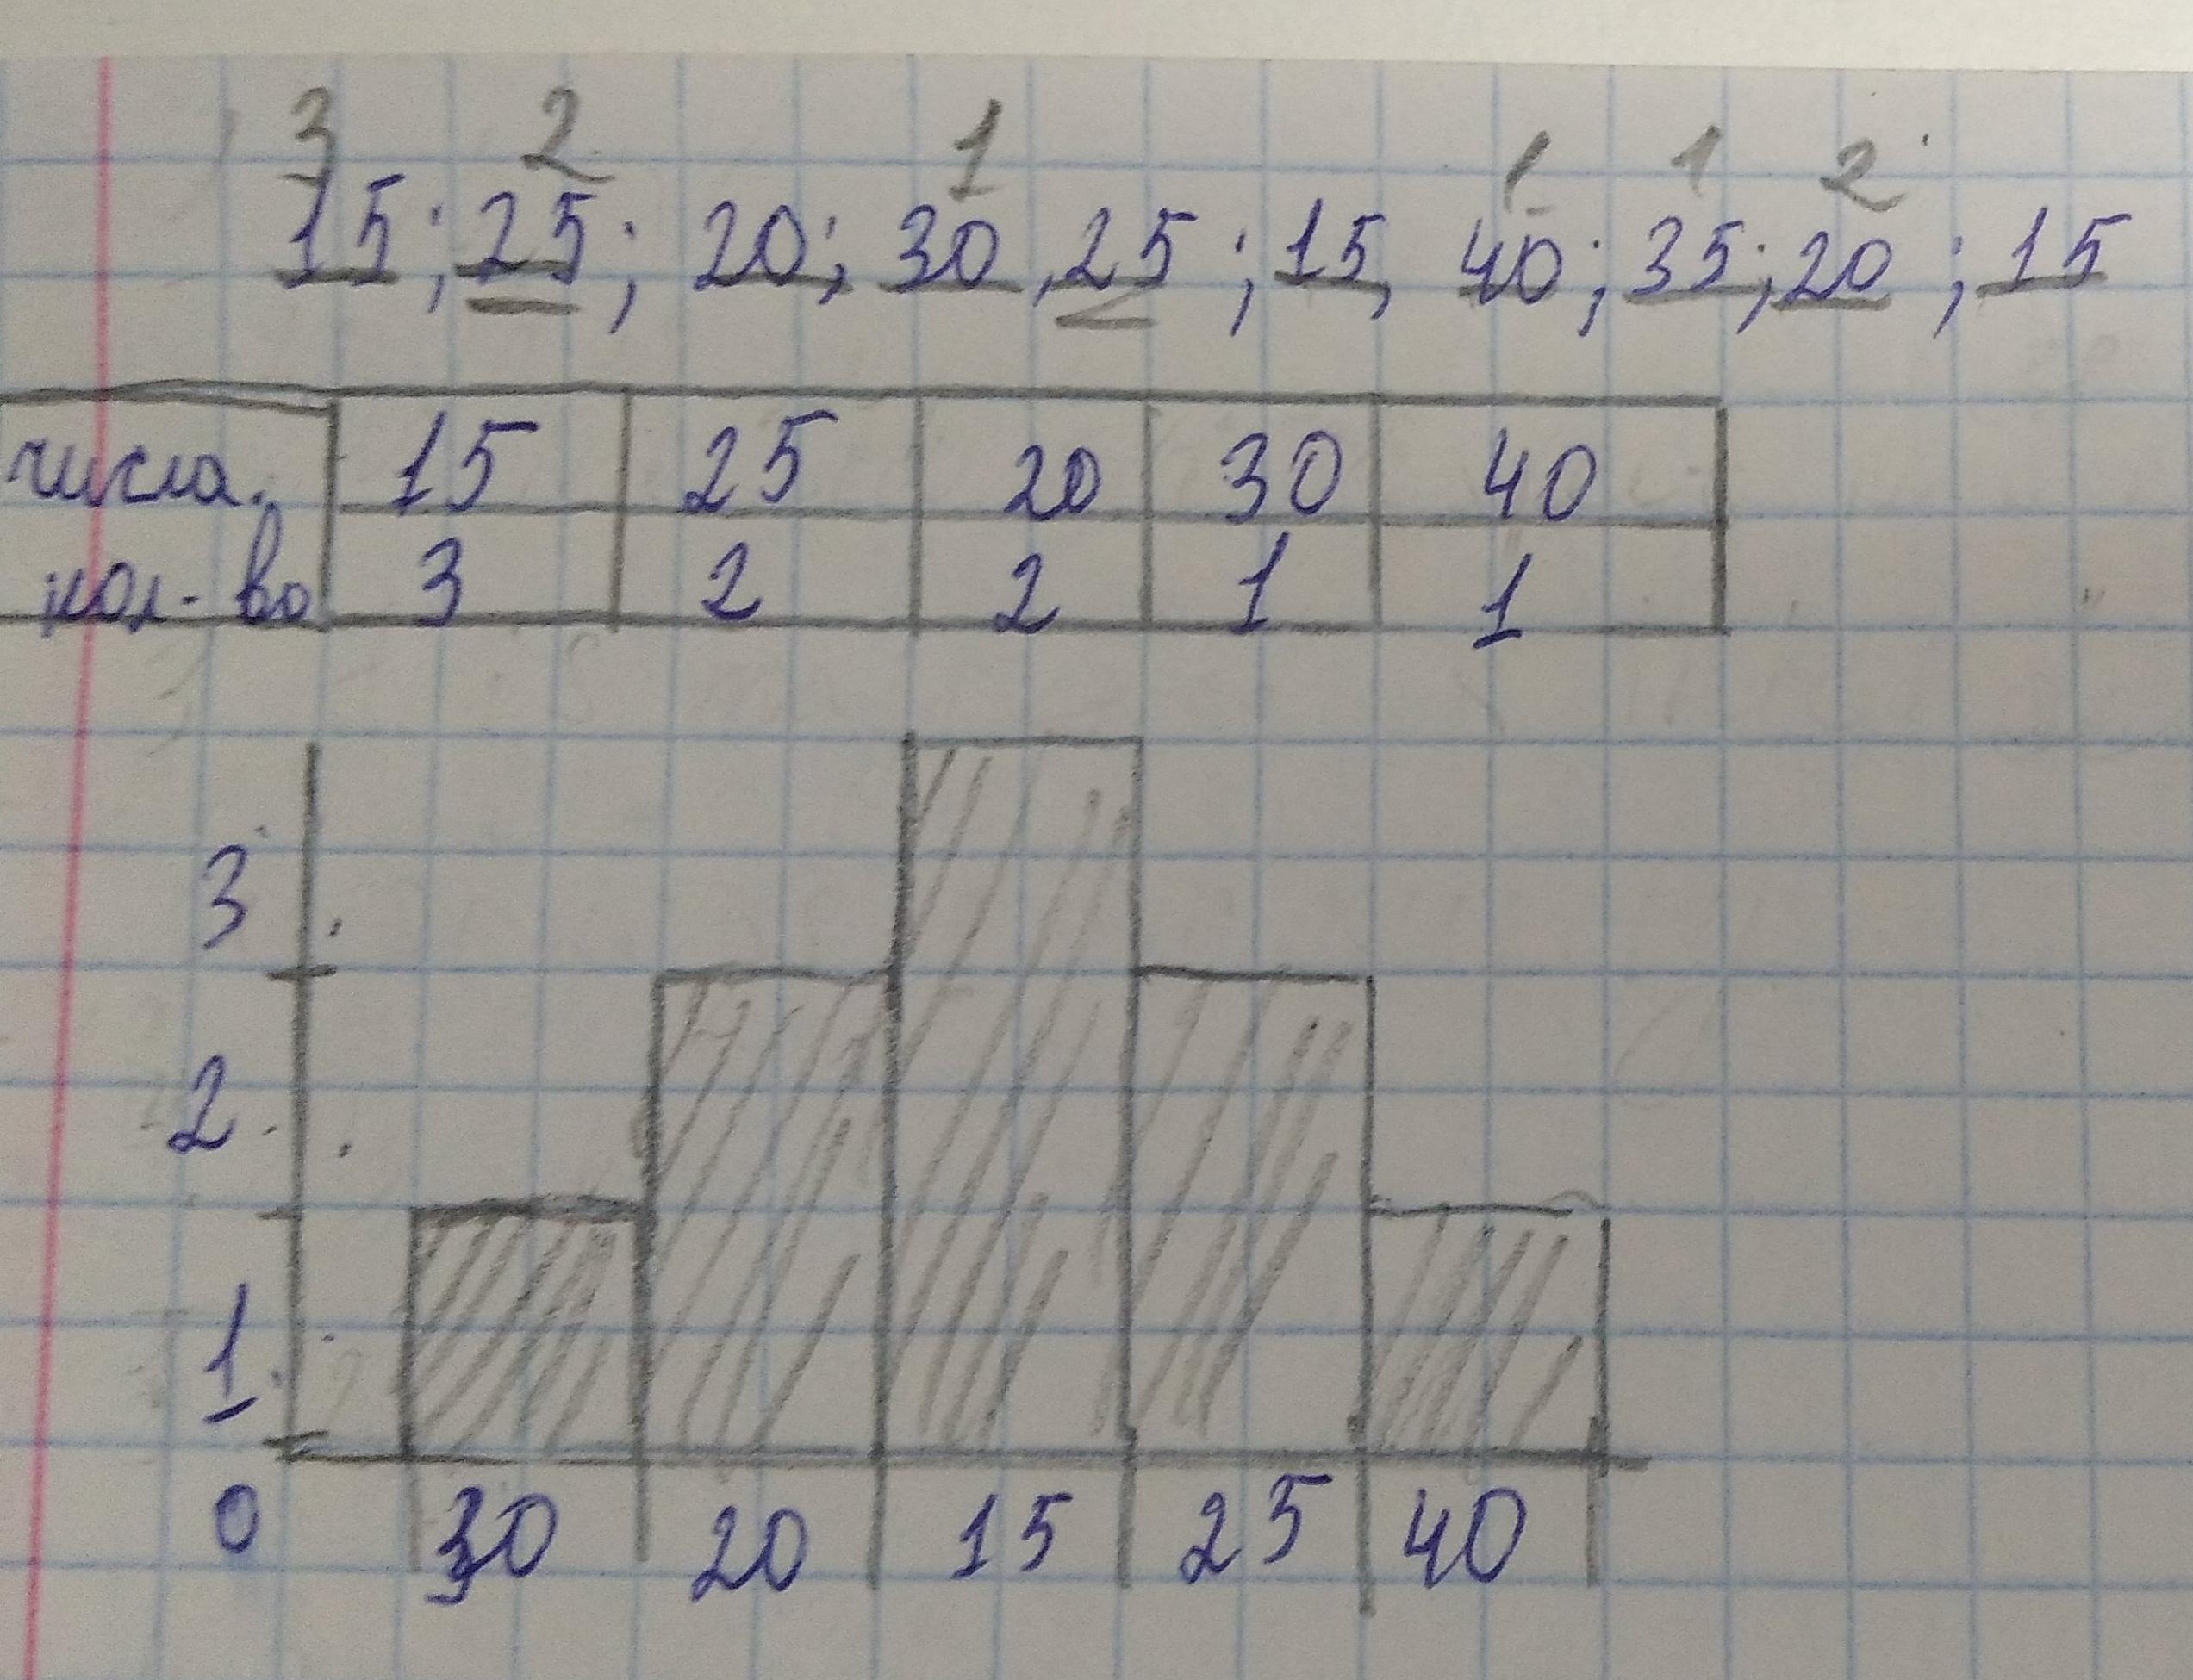 3 2 1 1 1 2
15; 25; 20; 30, 25; 15, 40; 35; 20; 15
числа. 15 25 20 30 40
кол-во 3 2 2 1 1
3
2
1
0 30 20 15 25 40